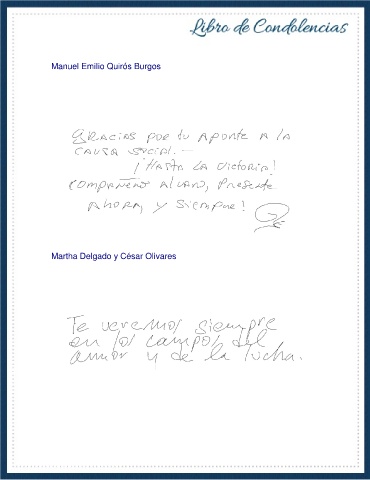 Libro de Condolencias
Manuel Emilio Quirós Burgos
Gracias por tu aporte a la
causa social.-
¡Hasta la victoria!
Compañero Alvaro, Presente
Ahora y siempre!
Martha Delgado y César Olivares
Te veremos siempre
en los campos del
amor y de la lucha.